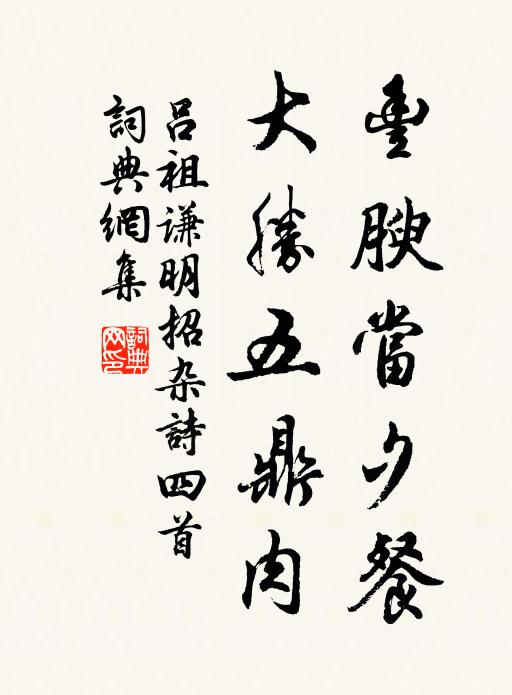 豊腴當夕餐
大勝五鼎肉
呂祖謙明招杂詩四首
詞典網集
詞典网印